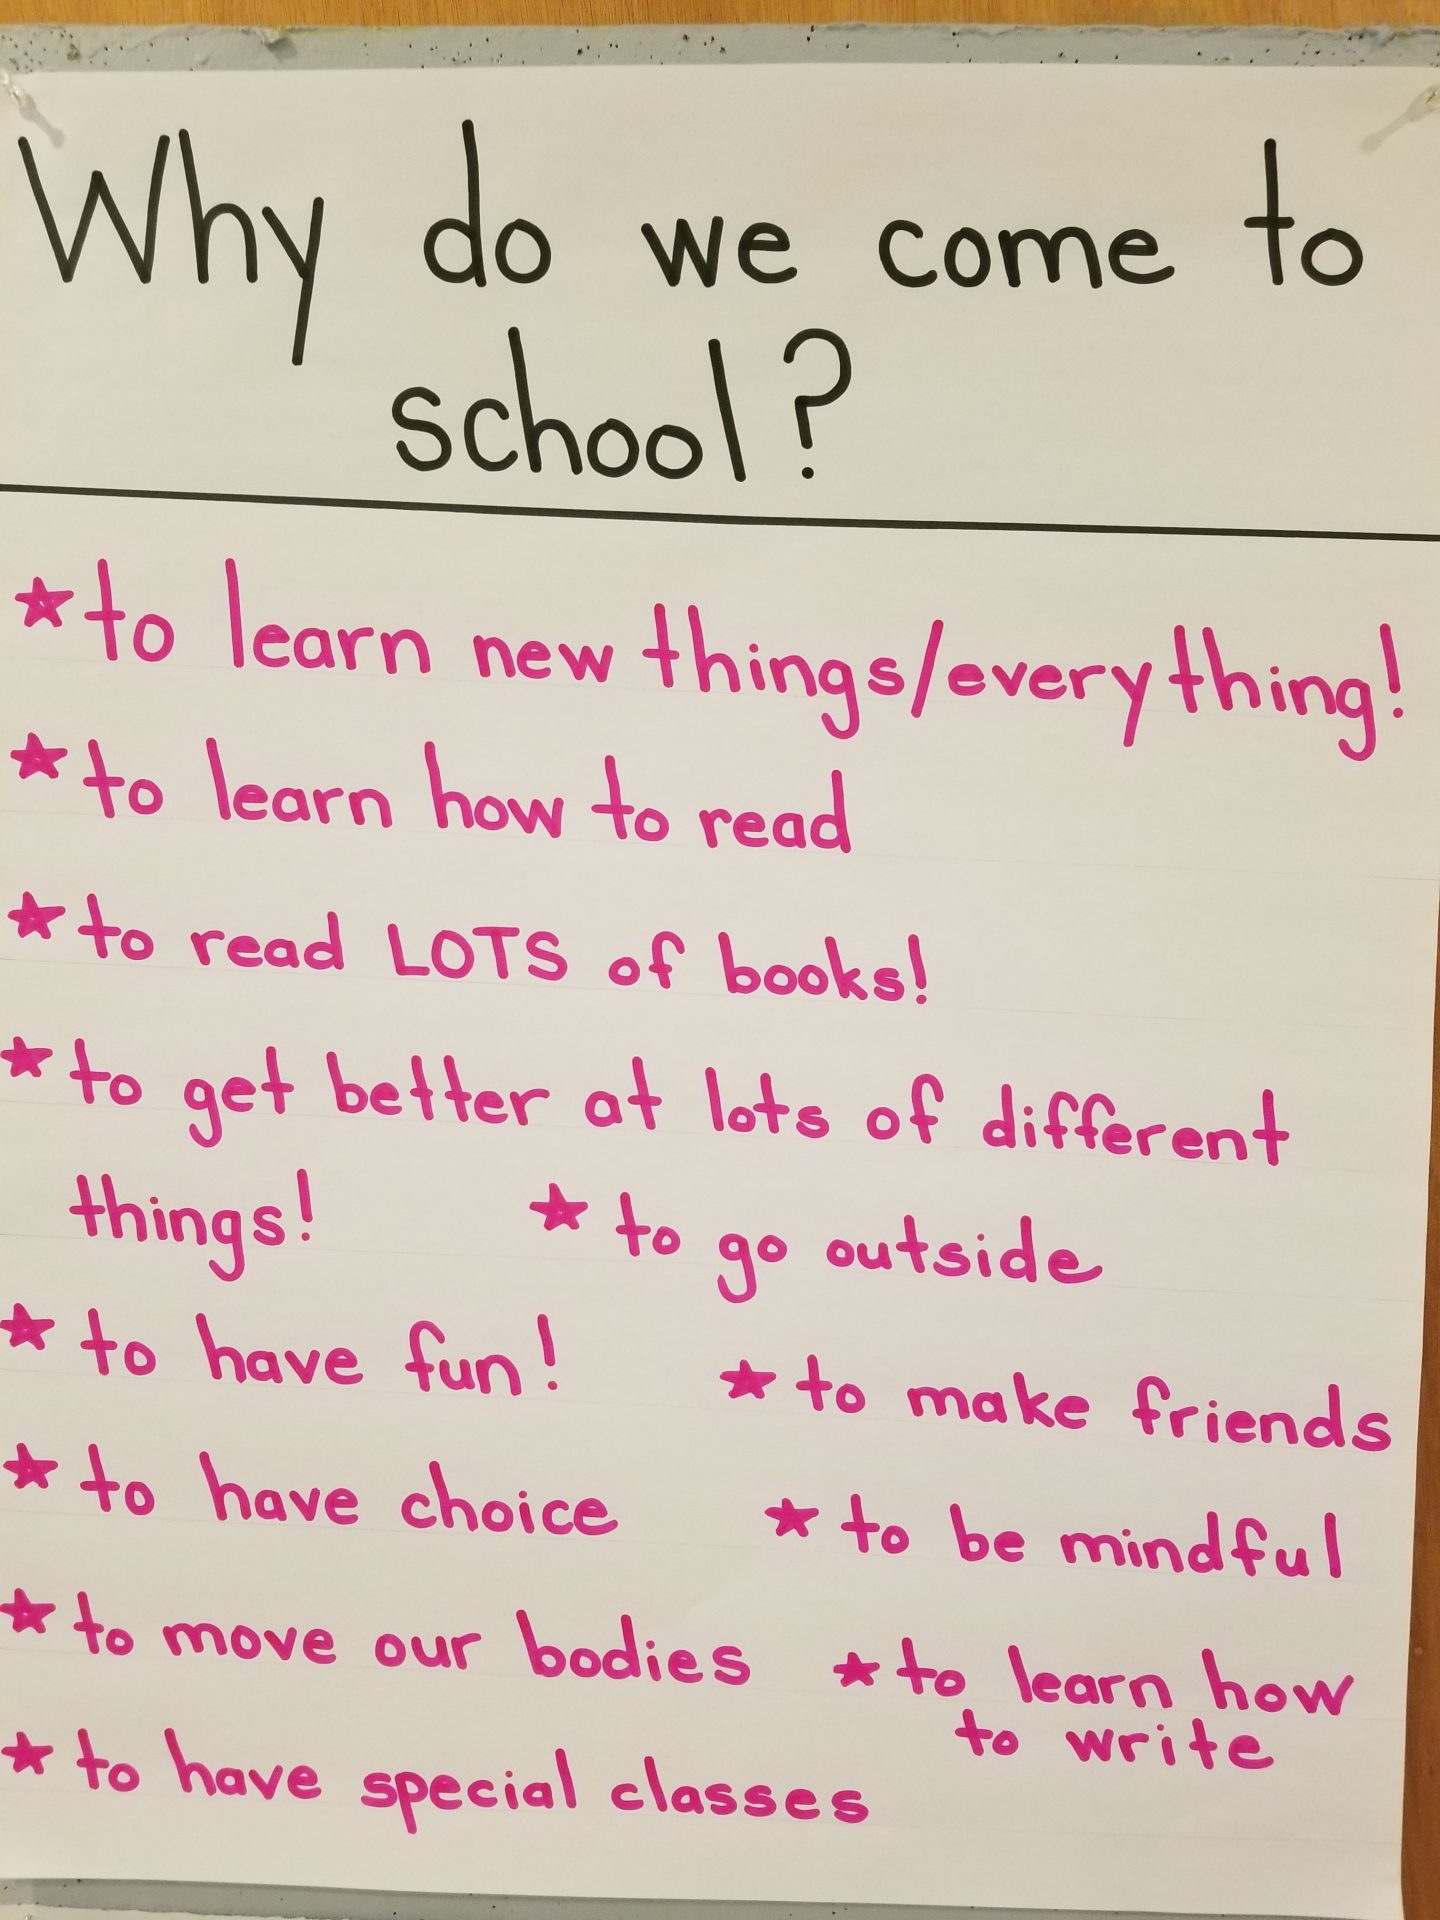 Why do we come to
school?
*to learn new things/everything!
*to learn how to read
*to read LOTS of books!
*to get better at lots of different
things! *to go outside
*to have fun! *to make friends
*to have choice *to be mindful
*to move our bodies *to learn how
to write
*to have special classes